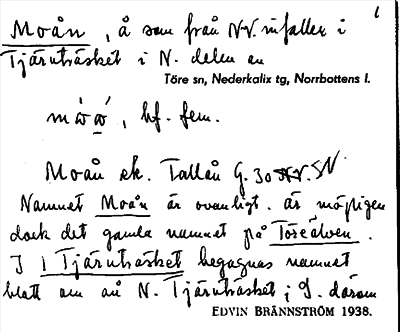 Moån, å som från NV. infaller i
Tjäruträsket i N. delen av
Töre sn, Nederkalix tg, Norrbottens l.
bf. fem.
Moån ek. Tallån G. 30 SN.
Namnet Moån är ovanligt. är möjligen
dock det gamla namnet på Töreälven.
I Tjäruträsket begagnas namnet
blott om ån N. Tjäruträsket; S. därom
EDVIN BRÄNNSTRÖM 1938.